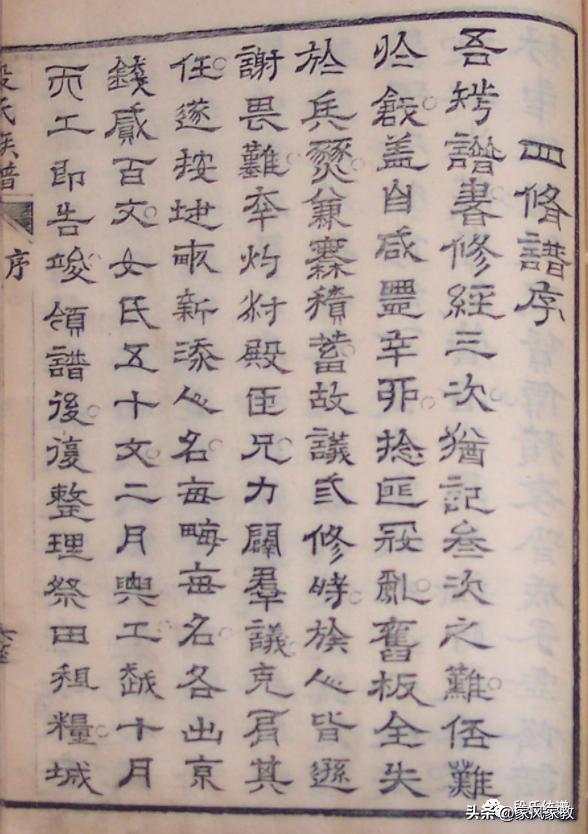 四脩譜序
吾譜書修經三次猶記叁次之難倍難
於創蓋自咸豐辛丣捻匪寇亂舊板全失
於兵燹兼寡積蓄故議弎修時族人皆遜
謝畏難本灼村殿臣兄力闢羣議克肩其
任遂按地畝新添人名每畮每名各出京
錢貳百文女氏五十文二月興工越十月
而工即告竣領譜後復整理祭田租糧城
段氏族譜
序
段氏统谱
头条 @家风家教